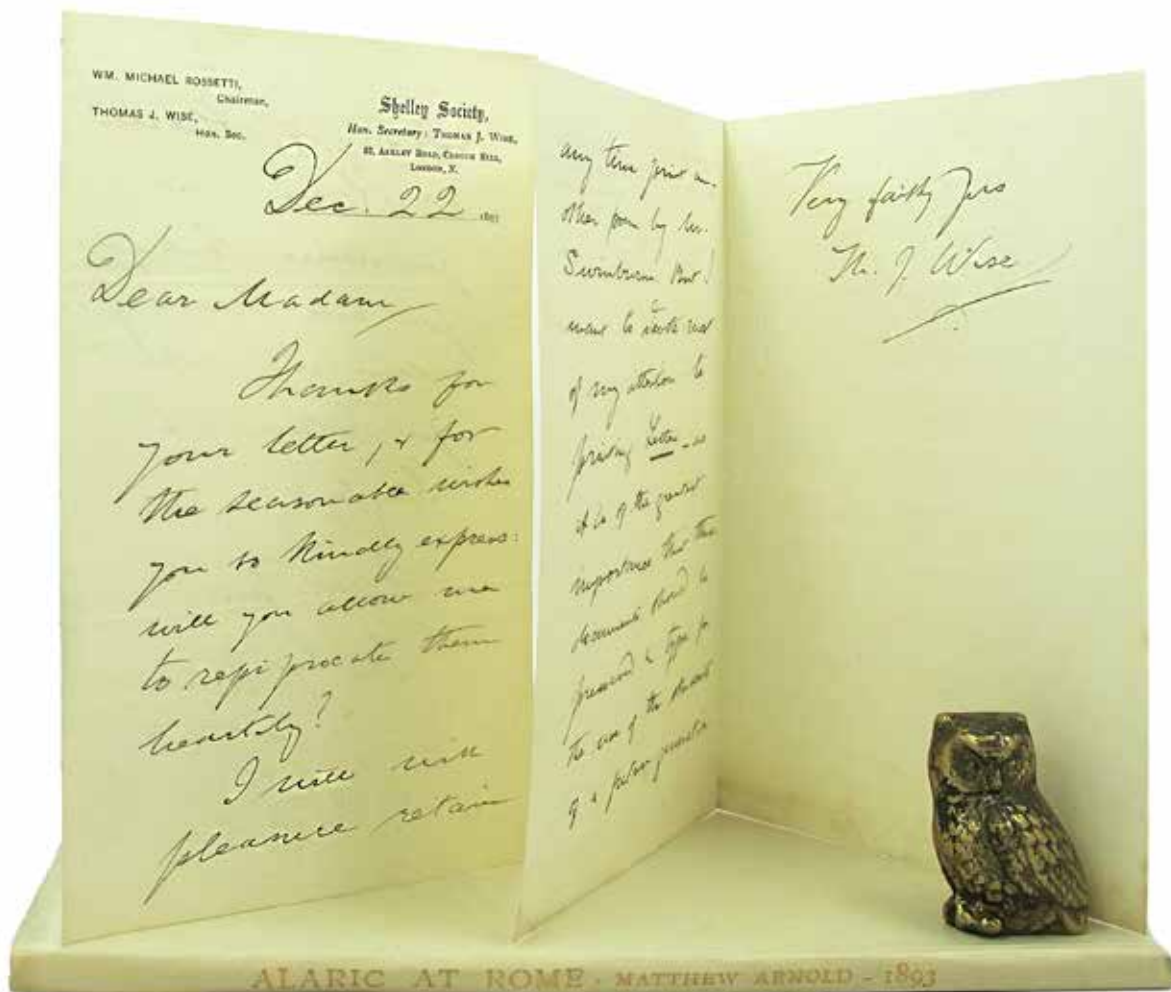 WM. MICHAEL ROSSETTI,
Chairman,
THOMAS J. WISE,
Hon. Sec.
Shelley Society,
Hon. Secretary: THOMAS J. WISE,
52, ASHLEY ROAD, CROUCH HILL,
LONDON, N.
Dec. 22 189
Dear Madam
Thanks for
your letter, & for
the seasonable wishes
you so kindly express:
will you allow me
to reciprocate them
heartily?
I will with
pleasure retain
any time print an-
other poem by Mr.
Swinburne. But I
want to devote
of my attention to
printing Letters – as
it is of the greatest
importance that these
documents should be
preserved in type for
the use of the student
of a future generation
Very faithy yrs
Th. J. Wise
ALARIC AT ROME · MATTHEW ARNOLD – 1893